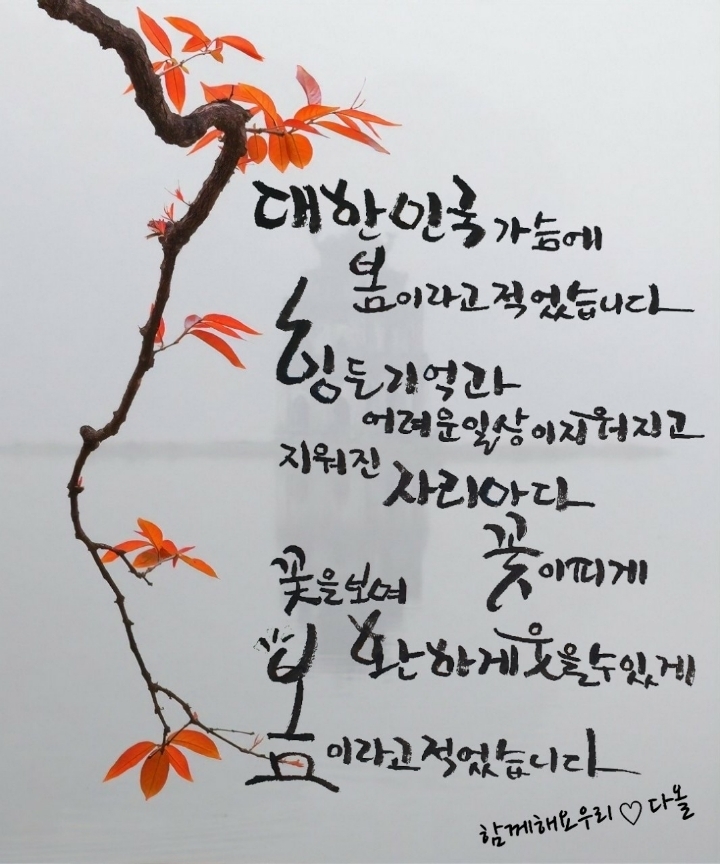 대한민국 가슴에
봄이라고 적었습니다
힘든 기억과
어려운 일상이 지워지고
지워진 자리마다
꽃이 피게
꽃을 보며
환하게 웃을 수 있게
봄이라고 적었습니다
함께해요 우리 ♡ 다올